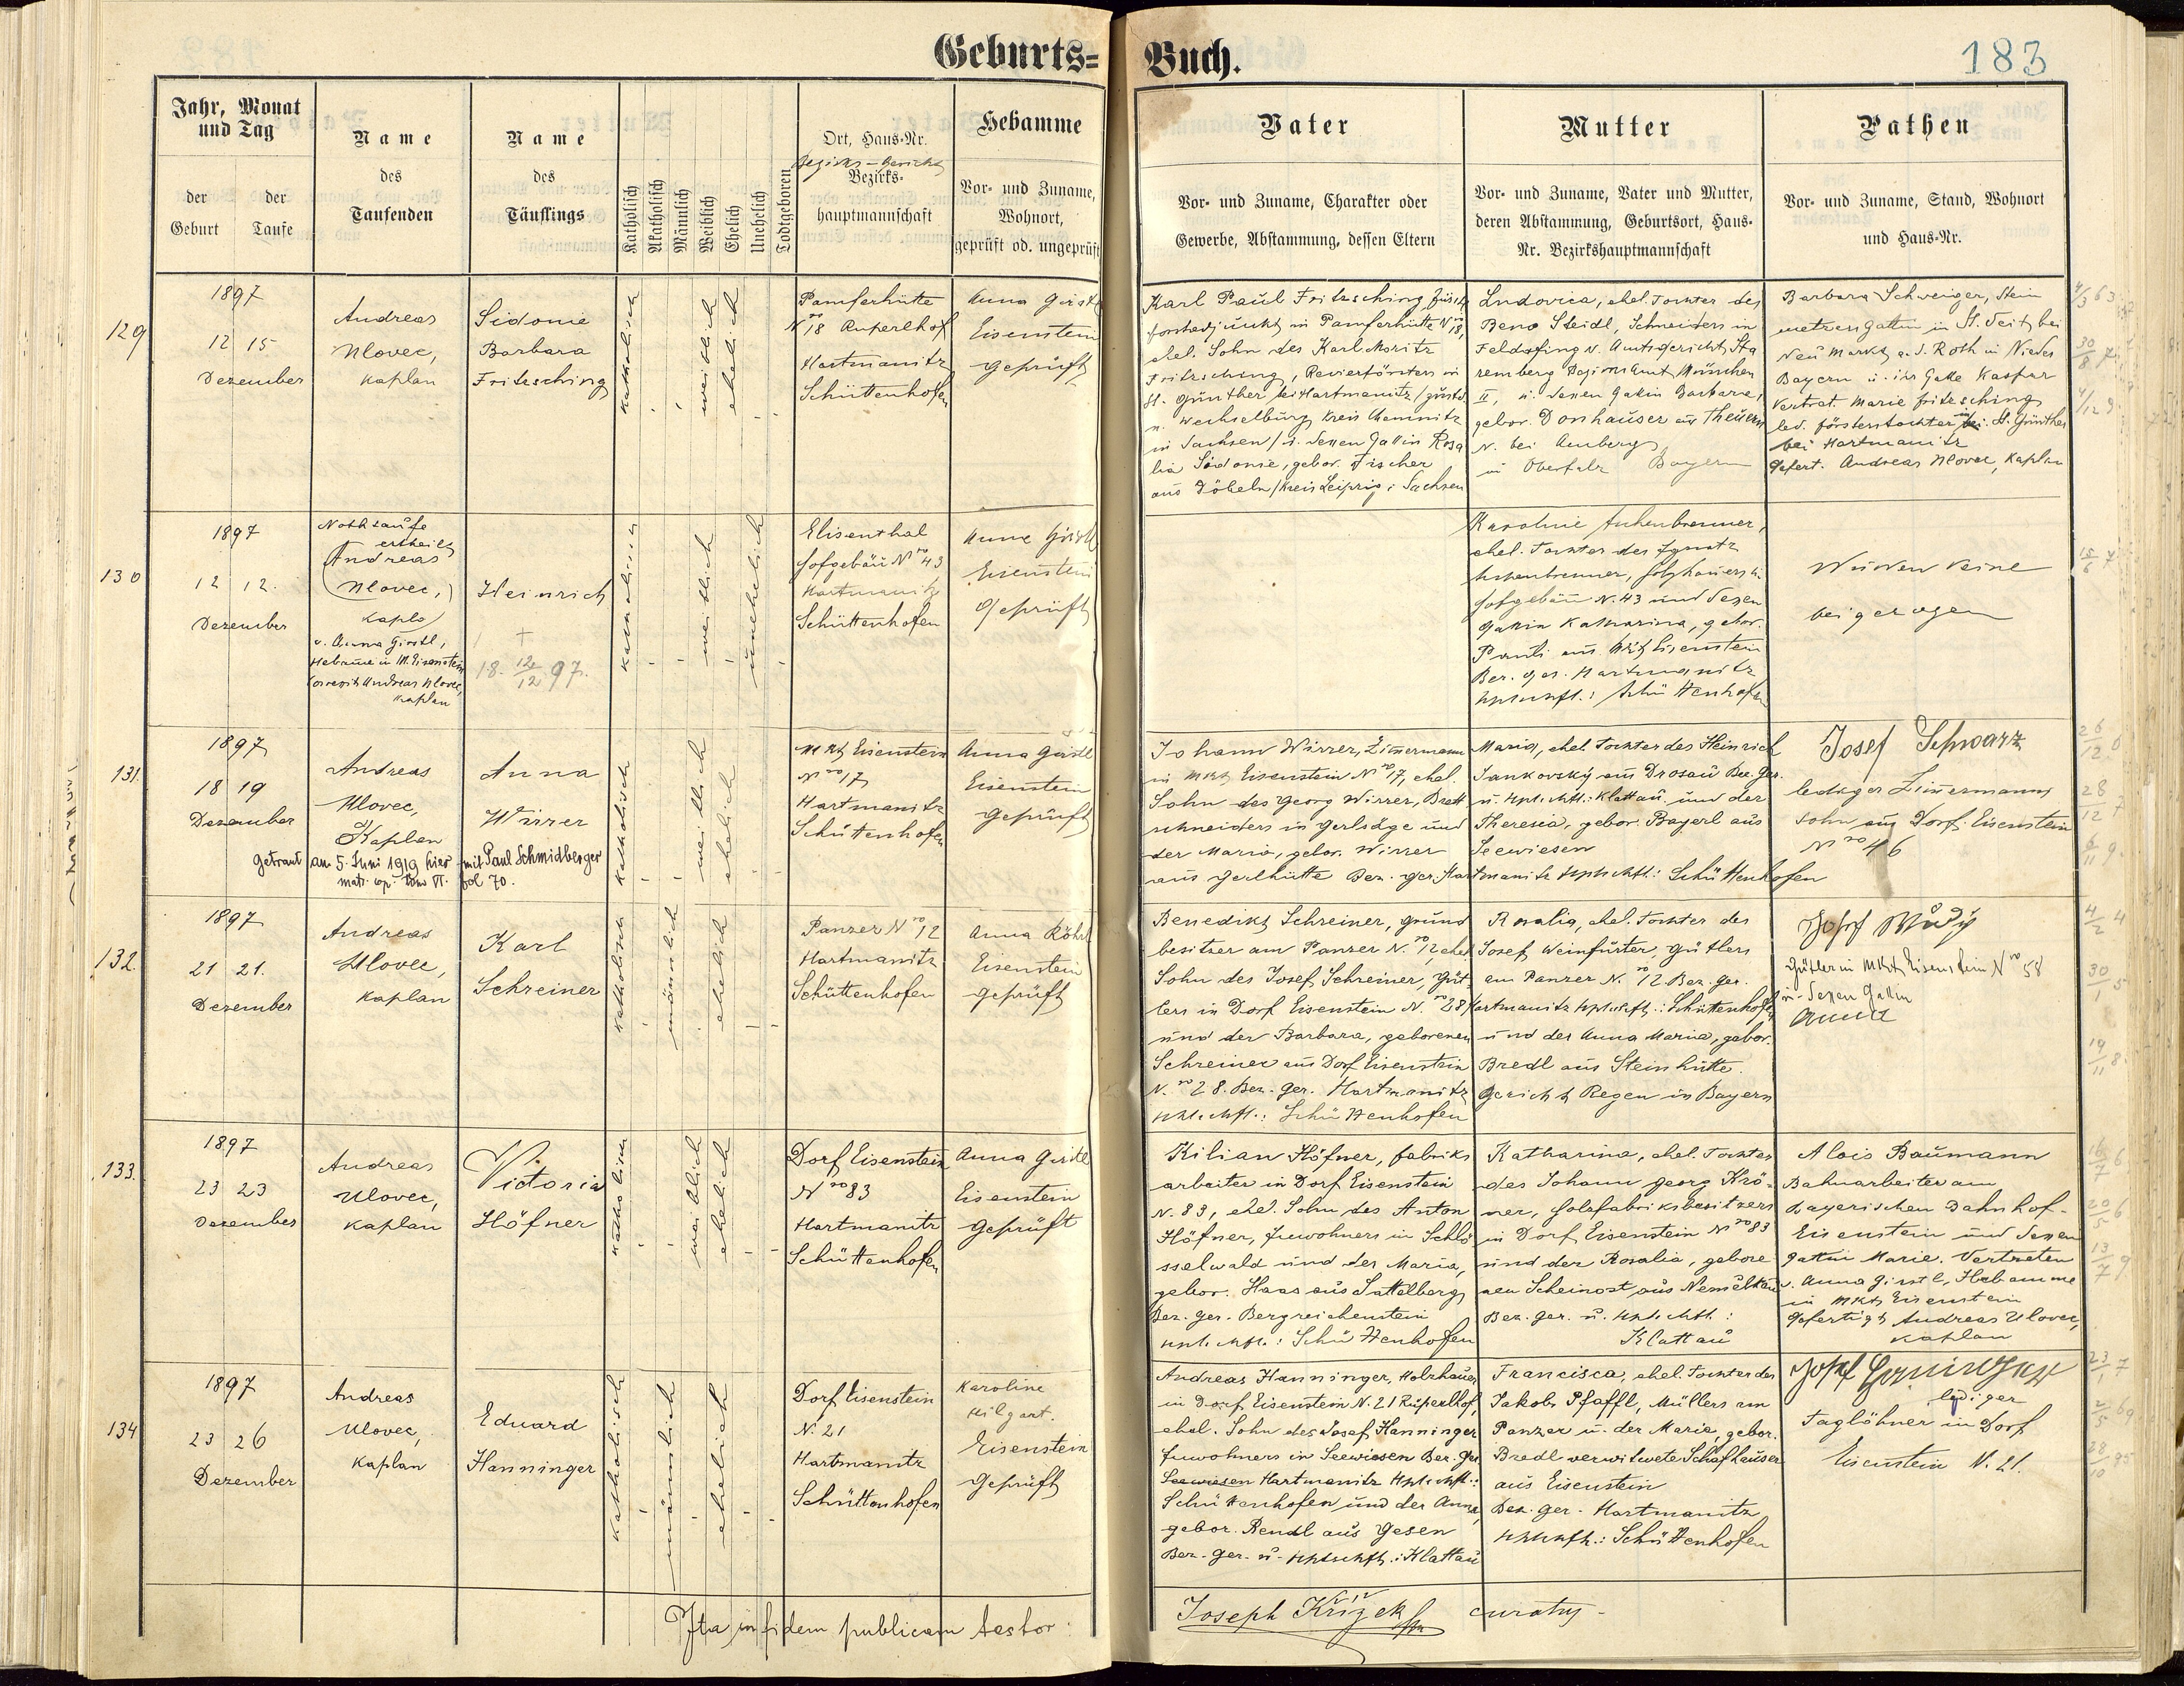 Geburts=
Buch.
183
Jahr, Monat
und Tag
der
Geburt
der
Taufe
Name
des
Taufenden
Name
des
Täuflings
Katholisch
Akatholisch
Männlich
Weiblich
Ehelich
Unehelich
Todtgeboren
Ort, Haus-Nr.
Bezirks-Gericht
Bezirks-
hauptmannschaft
Hebamme
Vor- und Zuname,
Wohnort,
geprüft od. ungeprüft
Vater
Vor- und Zuname, Charakter oder
Gewerbe, Abstammung, dessen Eltern
Mutter
Vor- und Zuname, Vater und Mutter,
deren Abstammung, Geburtsort, Haus-
Nr. Bezirkshauptmannschaft
Pathen
Vor- und Zuname, Stand, Wohnort
und Haus-Nr.
129
1897
12 15
Dezember
Andreas
Ulovec,
Kaplan
Sidonie
Barbara
Fritzsching
katholisch
weiblich
ehelich
Pamferhütte
Nro 18 Ruperlhof
Hartmanitz
Schüttenhofen
Anna Girstl
Eisenstein
Geprüft
Karl Paul Fritzsching, fürstl.
Forstadjunkt in Pamferhütte Nro 18,
ehel. Sohn des Karl Moritz
Fritzsching, Revierförsters in
St. Günther bei Hartmanitz
Wechselburg Kreis Chemnitz
in Sachsen / u. dessen Gattin Rosa
lia Sidonie, gebor. Fischer
aus Döbeln / Kreis Leipzig i. Sachsen
Ludovica, ehel. Tochter des
Beno Steidl, Schneiders in
Feldafing u. Amtsgericht Sta
remberg Bezirksamt München
II, u. dessen Gattin Barbara,
gebor. Donhauser aus Theuern
N. bei Amberg
in Oberfalz Bayern
Barbara Schweiger, Stein
metzensgattin in St. Veit bei
Neu Markt a. d. Roth in Nieder
Bayern u. ihr Gatte Kaspar
Vertret. Marie Fritzsching
led. Försterstochter in St. Günther
bei Hartmanitz
Gefert. Andreas Ulovec, Kaplan
130
1897
12 12.
Dezember
Nothtaufe
ertheilt
Andreas
(Ulovec,)
Kapla
v. Anna Girstl,
Hebamme in M. Eisenstein
Andreas Ulovec,
Kaplan
Heinrich
+
18 12/12 97.
katholisch
weiblich
unehelich
Elisenthal
Hofgebäu Nro 43
Hartmanitz
Schüttenhofen
Anna Girstl
Eisenstein
Geprüft
Karoline Aschenbrenner,
ehel. Tochter des Ignatz
Aschenbrenner, Holzhauers in
Hofgebäu N. 43 und dessen
Gattin Katharina, gebor.
Pauli aus Mkt Eisenstein
Bez. Ger. Hartmanitz
Hptschft.: Schüttenhofen
Wurden keine
beigezogen
131.
1897
18 19
Dezember
Andreas
Ulovec,
Kaplan
Anna
Wirrer
Getraut am 5. Juni 1919 hier mit Paul Schmidberger
matr. cop. tom VI. fol 70.
katholisch
weiblich
ehelich
Mkt Eisenstein
Nro 17
Hartmanitz
Schüttenhofen
Anna Girstl
Eisenstein
Geprüft
Johann Wirrer, Zimmermann
in Mkt Eisenstein Nro 17, ehel.
Sohn des Georg Wirrer, Brett
schneiders in Gerlsäge und
der Maria, gebor. Wirrer
aus Gerlhütte Bez. Ger. Hartmanitz Hptschft.: Schüttenhofen
Maria, ehel. Tochter des Heinrich
Jankovský aus Drosau Bez. Ger.
u. Hptschft.: Klattau und der
Theresia, gebor. Bayerl aus
Seewiesen
Josef Schwarz
lediger Zimmermanns
sohn aus Dorf Eisenstein
Nro 46
132.
1897
21 21.
Dezember
Andreas
Ulovec,
Kaplan
Karl
Schreiner
katholisch
männlich
ehelich
Panzer Nro 12
Hartmanitz
Schüttenhofen
Anna Röhrl
Eisenstein
Geprüft
Benedikt Schreiner, Grund
besitzer am Panzer N. ro 12, ehel
Sohn des Josef Schreiner, Güt
lers in Dorf Eisenstein N. ro 28
und der Barbara, geborenen
Schreiner aus Dorf Eisenstein
N. ro 28. Bez. Ger. Hartmanitz
Hptschft.: Schüttenhofen
Rosalia, ehel. Tochter des
Josef Weinfurter Gütlers
am Panzer N. ro 12 Bez. Ger.
Hartmanitz Hptschft.: Schüttenhofen
und der Anna Maria, gebor.
Bredl aus Steinhütte
Gericht Regen in Bayern
Josef
Gütler in Mkt Eisenstein Nro 58
u. dessen Gattin
Anna
133.
1897
23 23
Dezember
Andreas
Ulovec,
Kaplan
Victoria
Höfner
katholisch
weiblich
ehelich
Dorf Eisenstein
Nro 83
Hartmanitz
Schüttenhofen
Anna Girstl
Eisenstein
Geprüft
Kilian Höfner, Fabriks
arbeiter in Dorf Eisenstein
N. 83, ehel. Sohn des Anton
Höfner, Inwohners in Schlö
sselwald und der Maria,
gebor. Haas aus Sattelberg
Bez. Ger. Bergreichenstein
Hptschft.: Schüttenhofen
Katharina, ehel. Tochter
des Johann Georg Krö-
ner, Holzfabriksbesitzers
in Dorf Eisenstein Nro 83
und der Rosalia, gebore
nen Scheinost aus Nemelkau
Bez. Ger. u. Hptschft.:
Klattau
Alois Baumann
Bahnarbeiter am
bayerischen Bahnhof-
Eisenstein und dessen
Gattin Marie. Vertreten
v. Anna Girstl, Hebamme
in Mkt Eisenstein
Gefertigt Andreas Ulovec,
Kaplan
134
1897
23 26
Dezember
Andreas
Ulovec,
Kaplan
Eduard
Hanninger
katholisch
männlich
ehelich
Dorf Eisenstein
N. 21
Hartmanitz
Schüttenhofen
Karoline
Hilgart.
Eisenstein
Geprüft
Andreas Hanninger, Holzhauer
in Dorf Eisenstein N. 21 Ruperlhof,
ehel. Sohn des Josef Hanninger
Inwohners in Seewiesen Bez. Ger
Seewiesen Hartmanitz Hptschft.:
Schüttenhofen und der Anna,
gebor. Rendl aus Gesen
Bez. Ger. u. Hptschft.: Klattau
Francisca, ehel. Tochter des
Jakob Pfaffl, Müllers am
Panzer u. der Maria, gebor.
Bredl verwitwete Schafhauser
aus Eisenstein
Bez. Ger. Hartmanitz
Hptschft.: Schüttenhofen
Josef
lediger
Taglöhner in Dorf
Eisenstein N. 21.
Ita in fidem publicam testor:
Joseph Křížek curatus